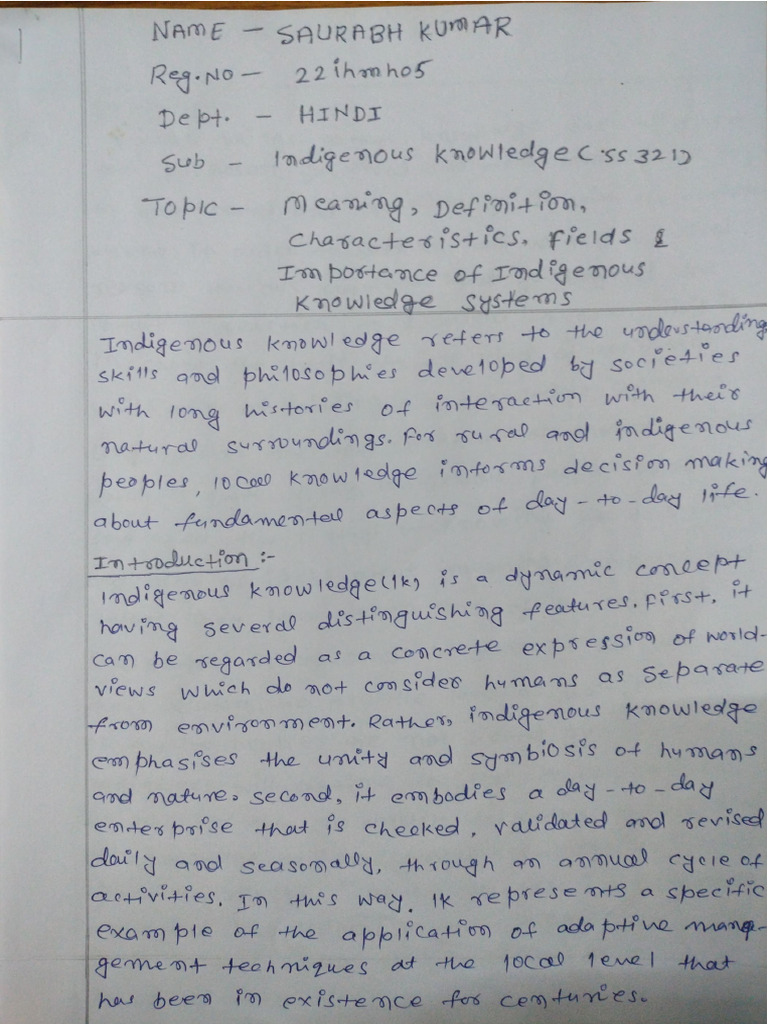 NAME - SAURABH KUMAR
Reg.No - 22ihmh05
Dept. - HINDI
Sub - Indigenous Knowledge (SS321)
Topic - Meaning, Definition,
Characteristics, Fields &
Importance of Indigenous
Knowledge Systems
Indigenous Knowledge refers to the understanding,
skills and philosophies developed by societies
with long histories of interaction with their
natural surroundings. For rural and indigenous
peoples, local knowledge informs decision making
about fundamental aspects of day-to-day life.
Introduction :-
Indigenous Knowledge (IK) is a dynamic concept
having several distinguishing features. First, it
can be regarded as a concrete expression of world-
views which do not consider humans as separate
from environment. Rather, indigenous knowledge
emphasises the unity and symbiosis of humans
and nature. Second, it embodies a day-to-day
enterprise that is checked, validated and revised
daily and seasonally, through an annual cycle of
activities. In this way, IK represents a specific
example of the application of adaptive mana-
gement techniques at the local level that
has been in existence for centuries.